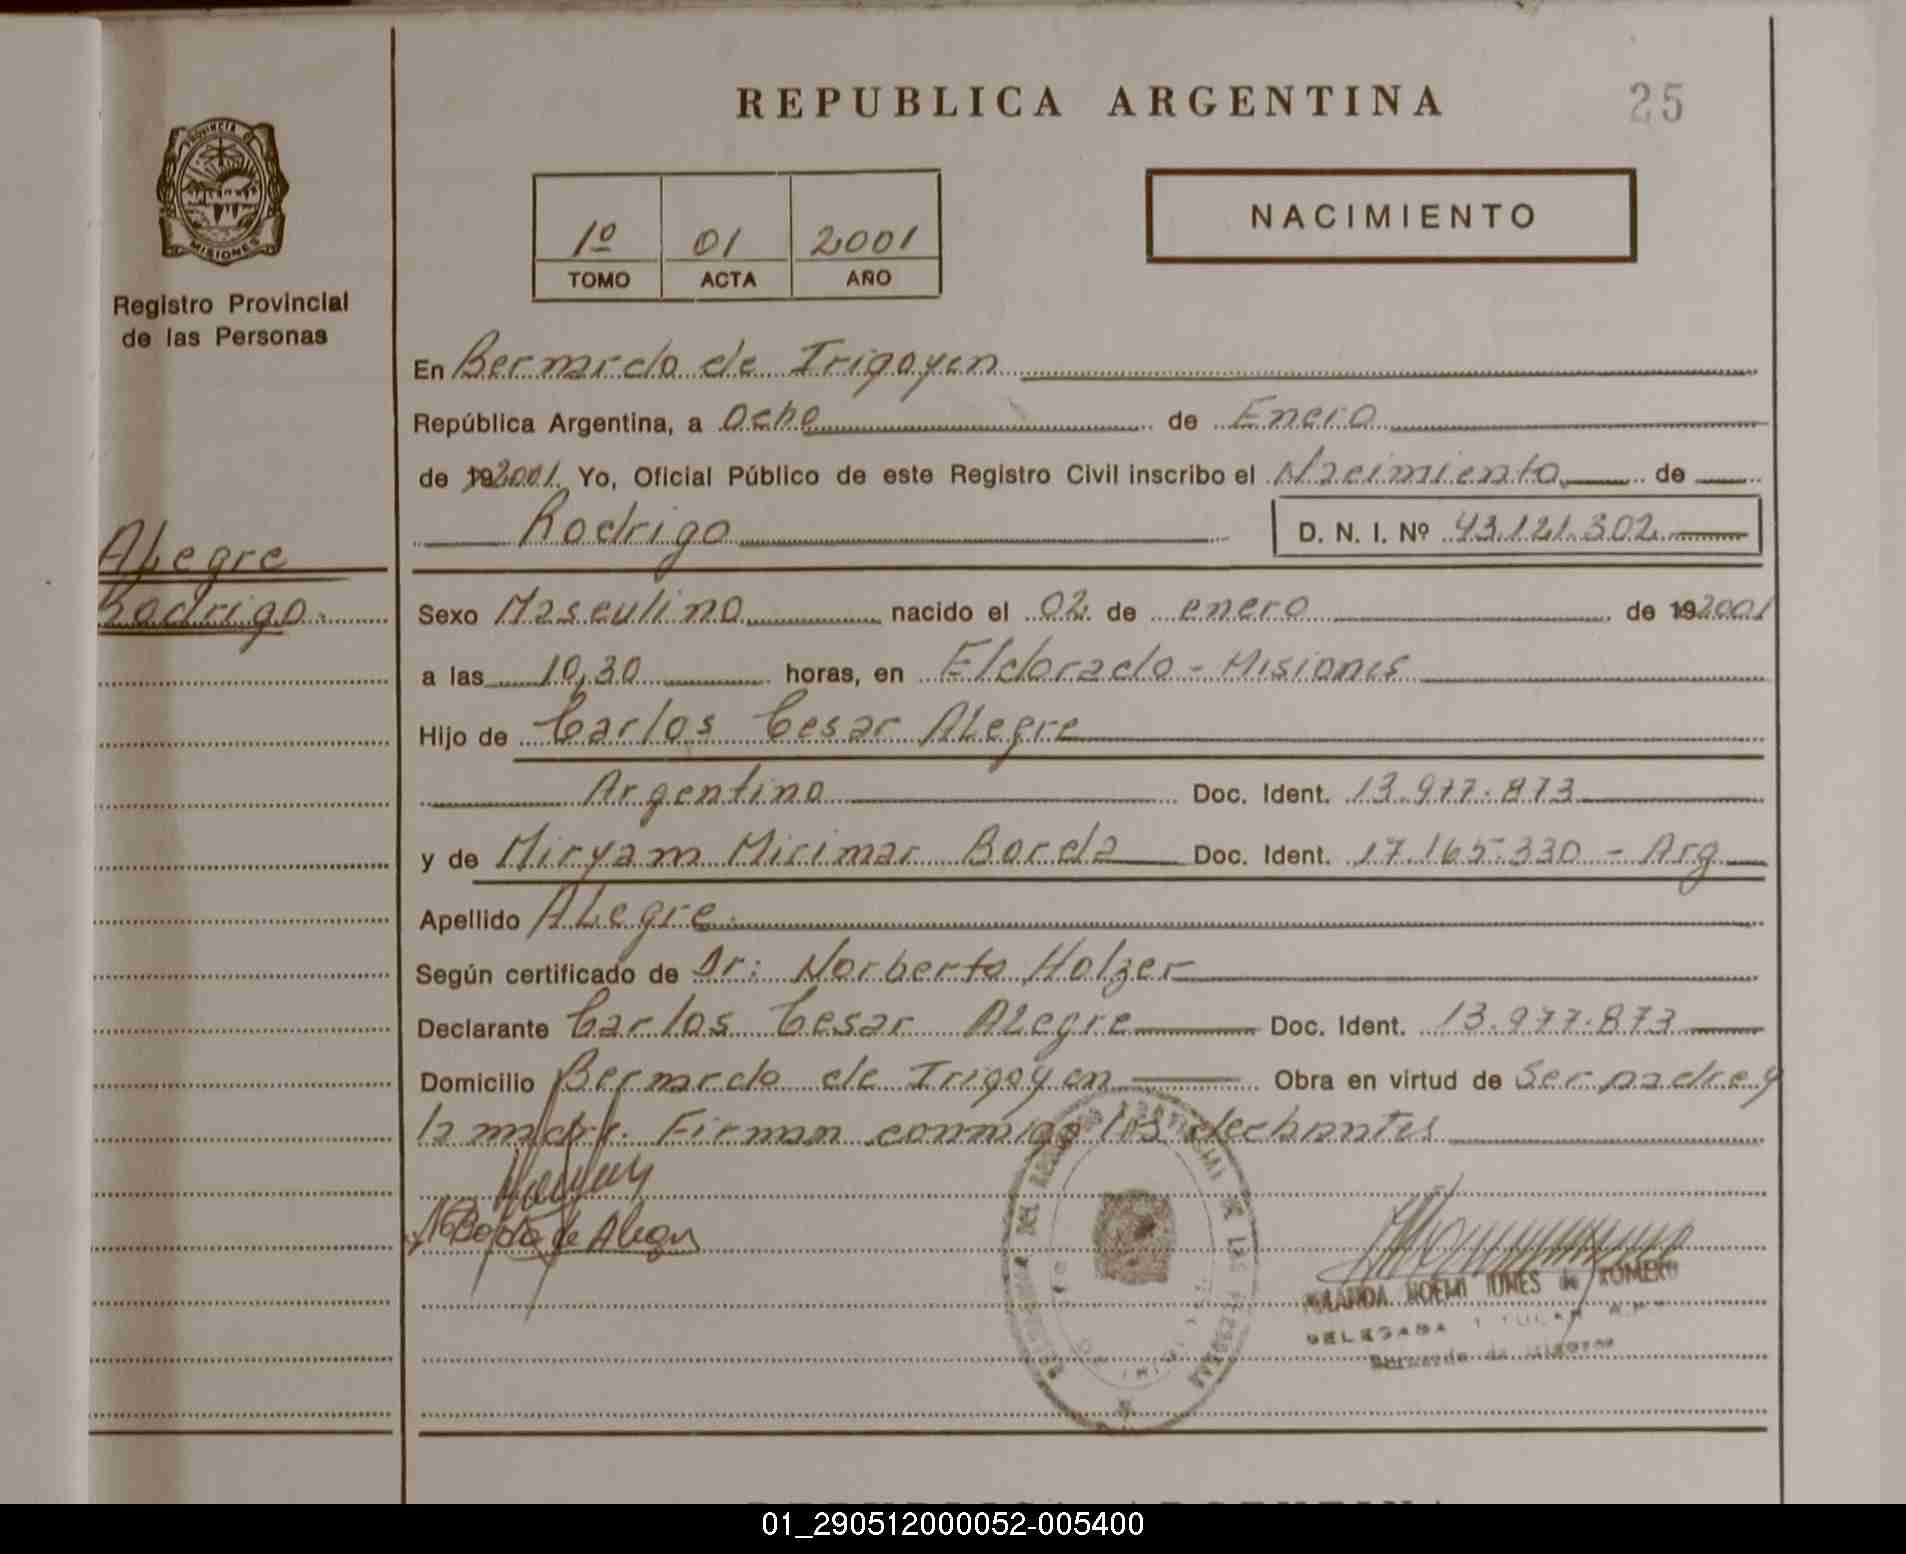 REPUBLICA ARGENTINA
25
PROVINCIA DE
MISIONES
Registro Provincial
de las Personas
1º 01 2001
TOMO ACTA AÑO
NACIMIENTO
En Bernardo de Irigoyen
República Argentina, a ocho de Enero
de 192001. Yo, Oficial Público de este Registro Civil inscribo el Nacimiento de
Rodrigo D. N. I. Nº 43.121.302
ALegre
Rodrigo.
Sexo Masculino nacido el 02 de enero de 192001
a las 10,30 horas, en Eldorado - Misiones
Hijo de Carlos Cesar ALegre
Argentino Doc. Ident. 13.977.873
y de Miryam Mirimar Borda Doc. Ident. 17.165.330 - Arg
Apellido ALegre.
Según certificado de Dr: Norberto Holzer
Declarante Carlos Cesar ALegre Doc. Ident. 13.977.873
Domicilio Bernardo de Irigoyen Obra en virtud de Ser padre y
la madre. Firman conmigo los declarantes
Borda de Alegre
NOEMI de ROMERO
DELEGADA TITULAR
Bernardo de Irigoyen
01_290512000052-005400